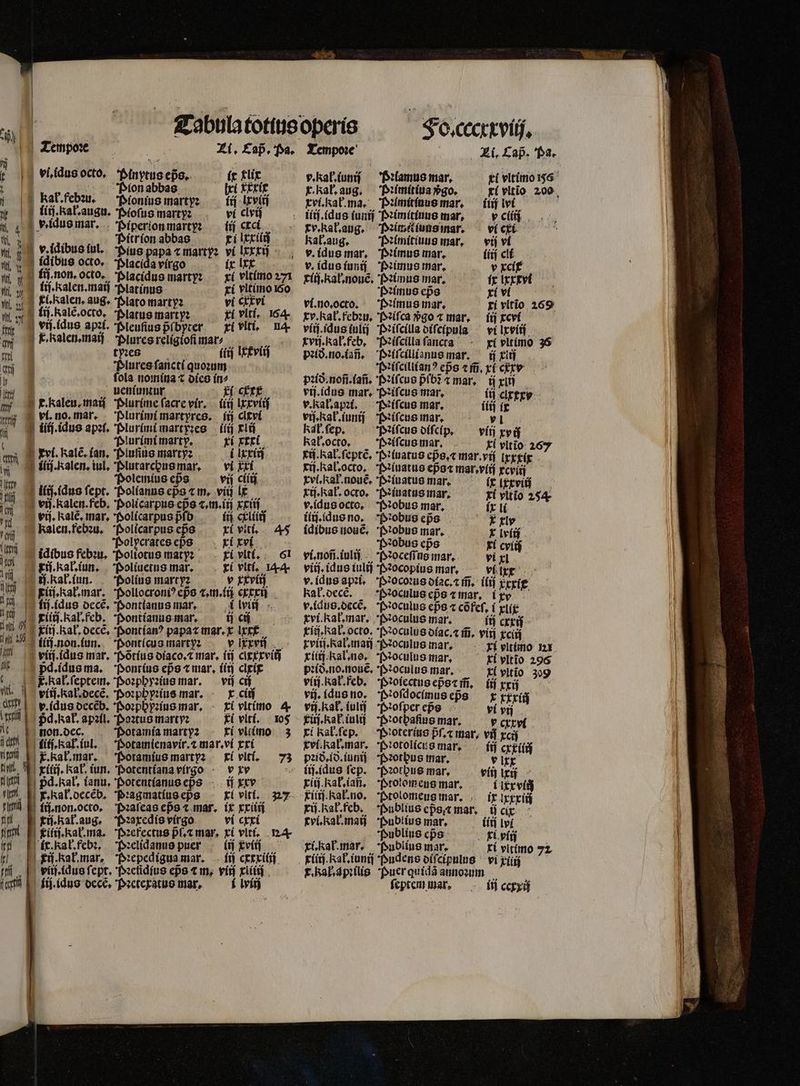 Tabula totius operis
Fo.ccccxviij.
Tempore Li. Cap. Pa.
vi.idus octo. Pinytus eps. ix xlix
Pion abbas lxi xxxix
kal.febru. Pionius martyr iij lxviij
iiij.kal.augu. Piosus martyr vi clvij
v.idus mar. Piperion martyr iij cxci
Pitrion abbas xi lxxiiij
v.idibus iul. Pius papa ⁊ martyr vi lxxxij
idibus octo. Placida virgo ix lxx
iij.non.octo. Placidus martyr xi vltimo 271
iij.kalen.maij Platinus xi vltimo 160
xi.kalen.aug. Plato martyr vi cxxvi
iij.kale.octo. Platus martyr xi vlti. 164
vij.idus apri. Pleusius presbyter xi vlti. 114
x.kalen.maij Plures religiosi mar⸗
tyres iiij lxxviij
Plures sancti quorum
sola nomina ⁊ dies in⸗
ueniuntur xi cxxx
x.kalen.maij Plurime sacre vir. iiij lxxviij
vi.no.mar. Plurimi martyres. iij clxvi
iiij.idus apri. Plurimi martyres iiij xlij
Plurimi martyr. xi xcxi
xvi.kale.ian. Plusius martyr i lxxiij
iiij.kalen.iul. Plutarchus mar. vi xxi
Polemius eps vij ciiij
iiij.idus sept. Polianus eps ⁊ m. viij lx
vij.kalen.feb. Policarpus eps ⁊.m.ij xxiij
vij.kale.mar. Policarpus pbr iij cxliiij
kalen.febru. Policarpus eps xi vlti. 45
Polycrates eps xi xvi
idibus febru. Poliotus matyr xi vlti. 61
xij.kal.iun. Poliuctus mar. xi vlti. 144
ij.kal.iun. Polius martyr v xxviij
xiij.kal.mar. Pollocroni⁹ eps ⁊.m.iij cxxxij
iij.idus dece. Pontianus mar. i lviij
xiiij.kal.feb. Pontianus mar. ij cij
xiij.kal.dece. Pontian⁹ papa⁊ mar.x lxxx
iiij.non.iun. Ponticus martyr v lxxvij
viij.idus mar. Potius diaco.⁊ mar. iij clxxxviij
pd.idus ma. Pontius eps ⁊ mar. iiij clxix
x.kal.septem. Porphyrius mar. vij cij
viij.kal.dece. Porphyrius mar. x ciij
v.idus deceb. Porphyrius mar. xi vltimo 4
pd.kal.april. Portus martyr xi vlti. 105
non.dec. Potamia martyr xi vltimo 3
iiij.kal.iul. Potamienavir.⁊ mar.vi xxi
x.kal.mar. Potamius martyr xi vlti. 73
xiiij.kal.iun. Potentiana virgo v xv
pd.kal.ianu. Potentianus eps ij xxv
x.kal.deceb. Pragmatius eps xi vlti. 327
iij.non.octo. Praseas eps ⁊ mar. ix xxiiij
xij.kal.aug. Praxedis virgo vi cxxi
xiiij.kal.ma. Prefectus ps.⁊ mar. xi vlti. 124
ix.kal.febr. Prelidanus puer iij xviij
xij.kal.mar. Prepedigua mar. iij cxxxiiij
viij.idus sept. Presidius eps ⁊ m. viij xliiij
iij.idus dece. Pretextatus mar. i lviij
Tempore Li. Cap. Pa.
v.kal.iunij Priamus mar. xi vltimo 156
x.kal.aug. Primitiua virgo. xi vltio 200
xvi.kal.ma. Primitiuus mar. iiij lvi
iiij.idus iunij Primitiuus mar. v ciiij
xv.kal.aug. Primitiuus mar. vi cxi
kal.aug. Primitiuus mar. vij vi
v.idus mar. Primus mar. iiij clt
v.idus iunij Primus mar. v xcix
xiij.kal.noue. Primus mar. ix lxxxvi
Primus eps xi vi
vi.no.octo. Primus mar. xi vltio 269
xv.kal.febru. Prisca virgo ⁊ mar. iij xcvi
viij.idus iulij Priscilla discipula vi lxviij
xvij.kal.feb. Priscilla sancta xi vltimo 36
prid.no.ian. Priscillianus mar. ij xlij
Priscillian⁹ eps ⁊ m. xi cxxv
prid.non.ian. Priscus pbr ⁊ mar. ij xlij
vij.idus mar. Priscus mar. iij clxxxv
v.kal.apri. Priscus mar. iiij ix
vij.kal.iunij Priscus mar. v l
kal.sep. Priscus discip. viij xvij
kal.octo. Priscus mar. xi vltio 267
xij.kal.septe. Priuatus eps.⁊ mar.vij lxxxix
xij.kal.octo. Priuatus eps⁊ mar.viij xcviij
xvi.kal.noue. Priuatus mar. ix lxxviij
xij.kal.octo. Priuatus mar. xi vltio 254
v.idus octo. Probus mar. ix li
iiij.idus no. Probus eps x xlv
idibus noue. Probus mar. x lviij
Probus eps xi cviij
vi.non.iulij Processus mar. vi xl
viij.idus iulij Procopius mar. vi lxx
v.idus apri. Procorus diac.⁊ m. iiij xxxix
kal.dece. Proculus eps ⁊ mar. i xv
v.idus.dece. Proculus eps ⁊ cofes. i xlix
xvi.kal.mar. Proculus mar. iij cxxij
xiij.kal.octo. Proculus diac.⁊ m. viij xciij
xviij.kal.maij Proculus mar. xi vltimo 121
xiiij.kal.no. Proculus mar. xi vltio 296
prid.no.noue. Proculus mar. xi vltio 309
viij.kal.feb. Proiectus eps⁊ m. iij xxij
vij.idus no. Prosdocimus eps x xxxiij
vij.kal.iulij Prosper eps vi vij
xiij.kal.iulij Prothasius mar. v cxxvi
xi kal.sep. Proterius ps.⁊ mar. vij xcij
xvi.kal.mar. Protolicus mar. iij cxxiiij
prid.id.iunij Prothus mar. v lxx
iij.idus sep. Prothus mar. viij lxij
xiij.kal.ian. Ptolomeus mar. i lxxviij
xiiij.kal.no. Ptolomeus mar. ix lxxxiij
xij.kal.feb. Publius eps.⁊ mar. ij cix
xvi.kal.maij Publius mar. iiij lvi
Publius eps xi viij
xi.kal.mar. Publius mar. xi vltimo 72
xiiij.kal.iunij Pudens discipulus vi xiiij
x.kal.aprilis Puer quida annorum
septem mar. iij ccxxij